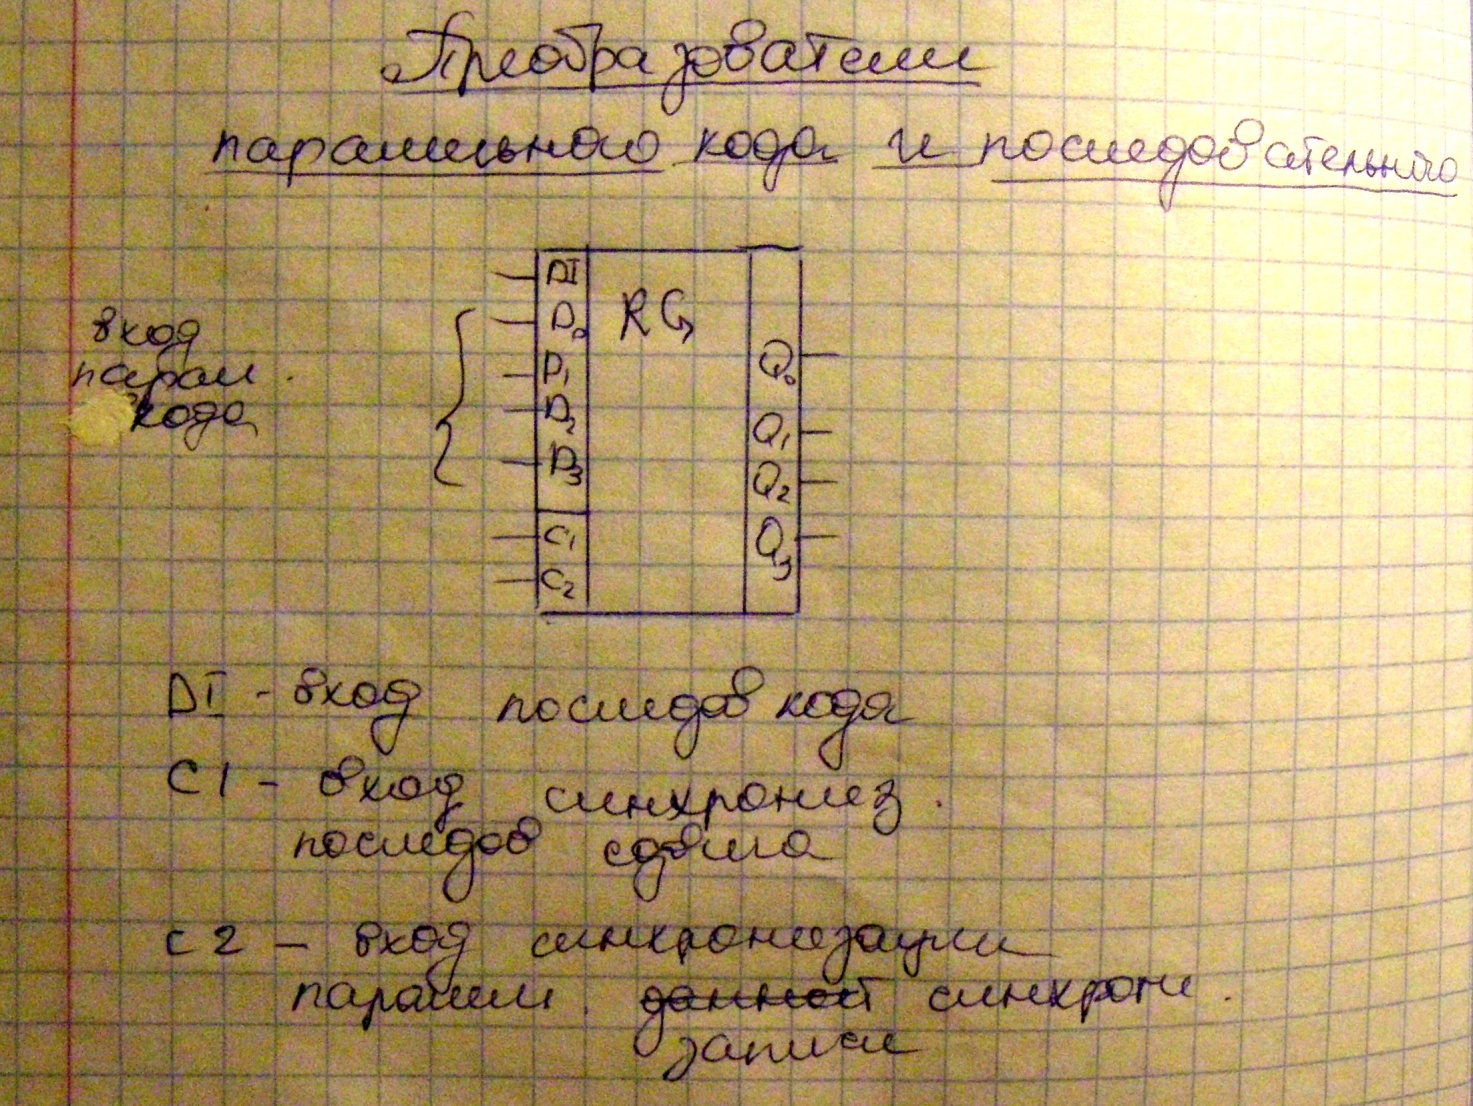 Преобразователи
паралельного кода и последовательного
DI
D0
D1
D2
D3
C1
C2
RG
Q0
Q1
Q2
Q3
вход
парал.
кода
DI - вход последов кода
C1 - вход синхрониз.
последов сдвига
C2 - вход синхронизации
паралел. данной синхрон.
записи